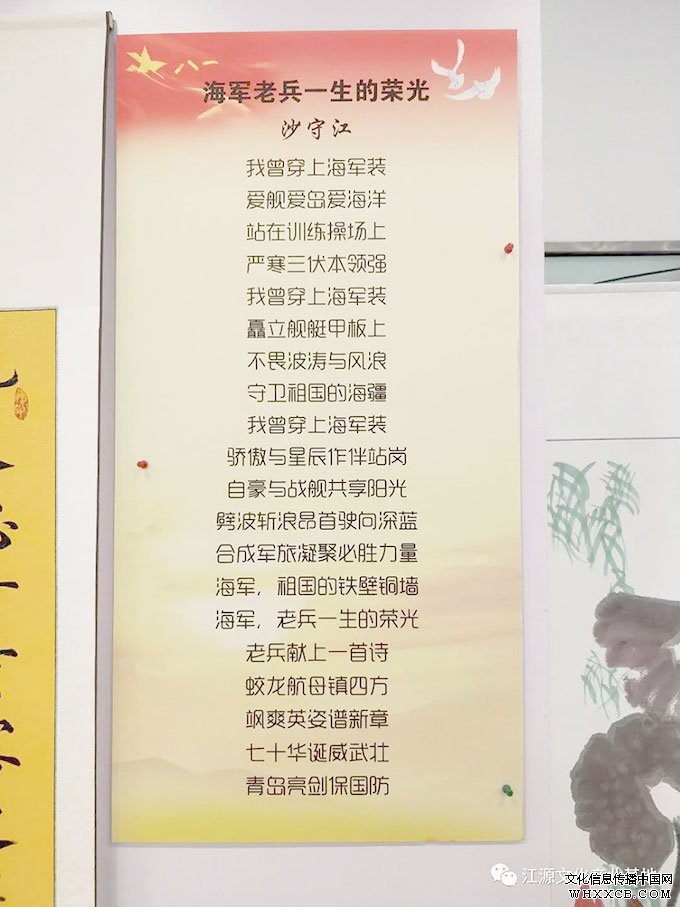 八一
海军老兵一生的荣光
沙守江
我曾穿上海军装
爱舰爱岛爱海洋
站在训练操场上
严寒三伏本领强
我曾穿上海军装
矗立舰艇甲板上
不畏波涛与风浪
守卫祖国的海疆
我曾穿上海军装
骄傲与星辰作伴站岗
自豪与战舰共享阳光
劈波斩浪昂首驶向深蓝
合成军旅凝聚必胜力量
海军，祖国的铁壁铜墙
海军，老兵一生的荣光
老兵献上一首诗
蛟龙航母镇四方
飒爽英姿谱新章
七十华诞威武壮
青岛亮剑保国防
江源文化
文化信息传播中国网
WHXXCB.COM